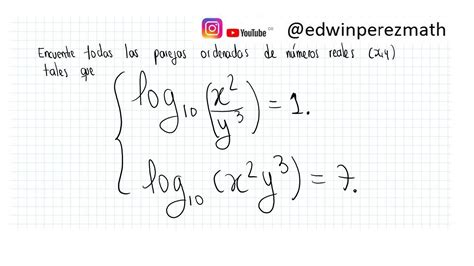 YouTube @edwinperezmath
Encuentre todas las parejas ordenadas de números reales (x,y)
tales que
log₁₀(x²/y³) = 1.
log₁₀(x²y³) = 7.